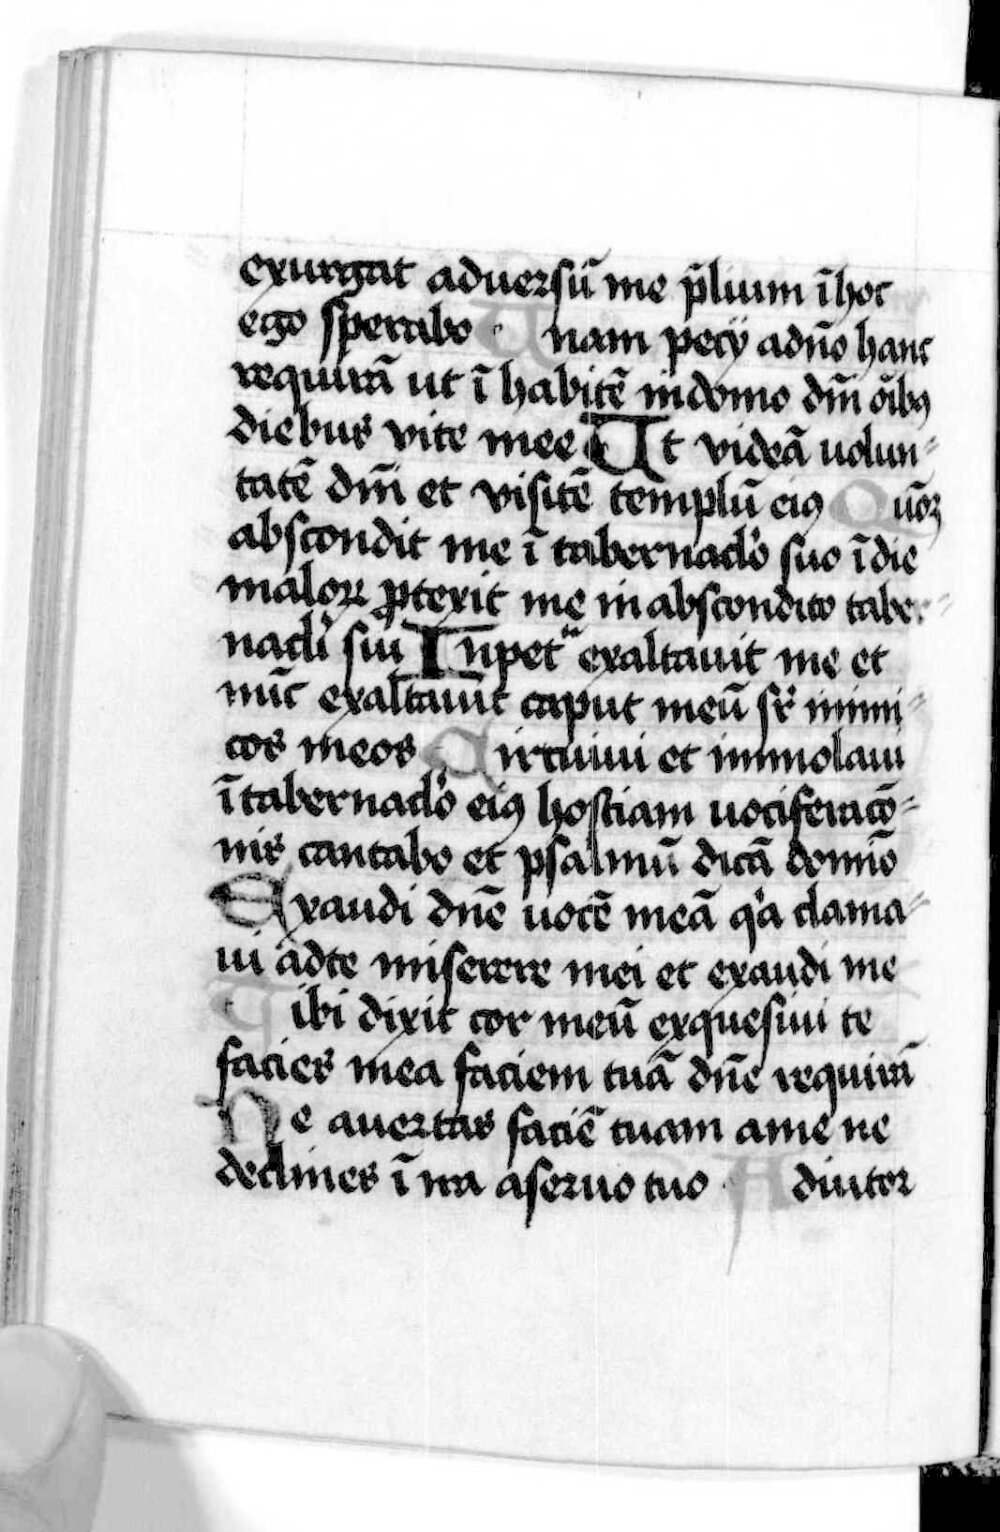 exurgat aduersū me p̄lium ī hoc
ego sperabo Unam pecij ad dn̄o hanc
requirā ut ī habitē in domo dn̄i oīb9
diebus vite mee Ut videā uolun-
tatē dn̄i et visitē templū ei9 Quōꝝ
abscondit me ī tabernaclo suo ī die
maloꝝ ꝓtexit me in abscondito taber-
nacli sui In pet^a exaltauit me et
nūc exaltauit caput meū sr̄ inimi-
cos meos Circuiui et immolaui
ī tabernaclo ei9 hostiam uociferacō-
nis cantabo et psalmū dicā domīo
Exaudi dn̄e uocē meā q^ia clama-
ui ad te miserere mei et exaudi me
Tibi dixit cor meū exquesiui te
facies mea faciem tuā dn̄e requirā
Ne auertas faciē tuam a me ne
declines ī ira a seruo tuo Adiutor